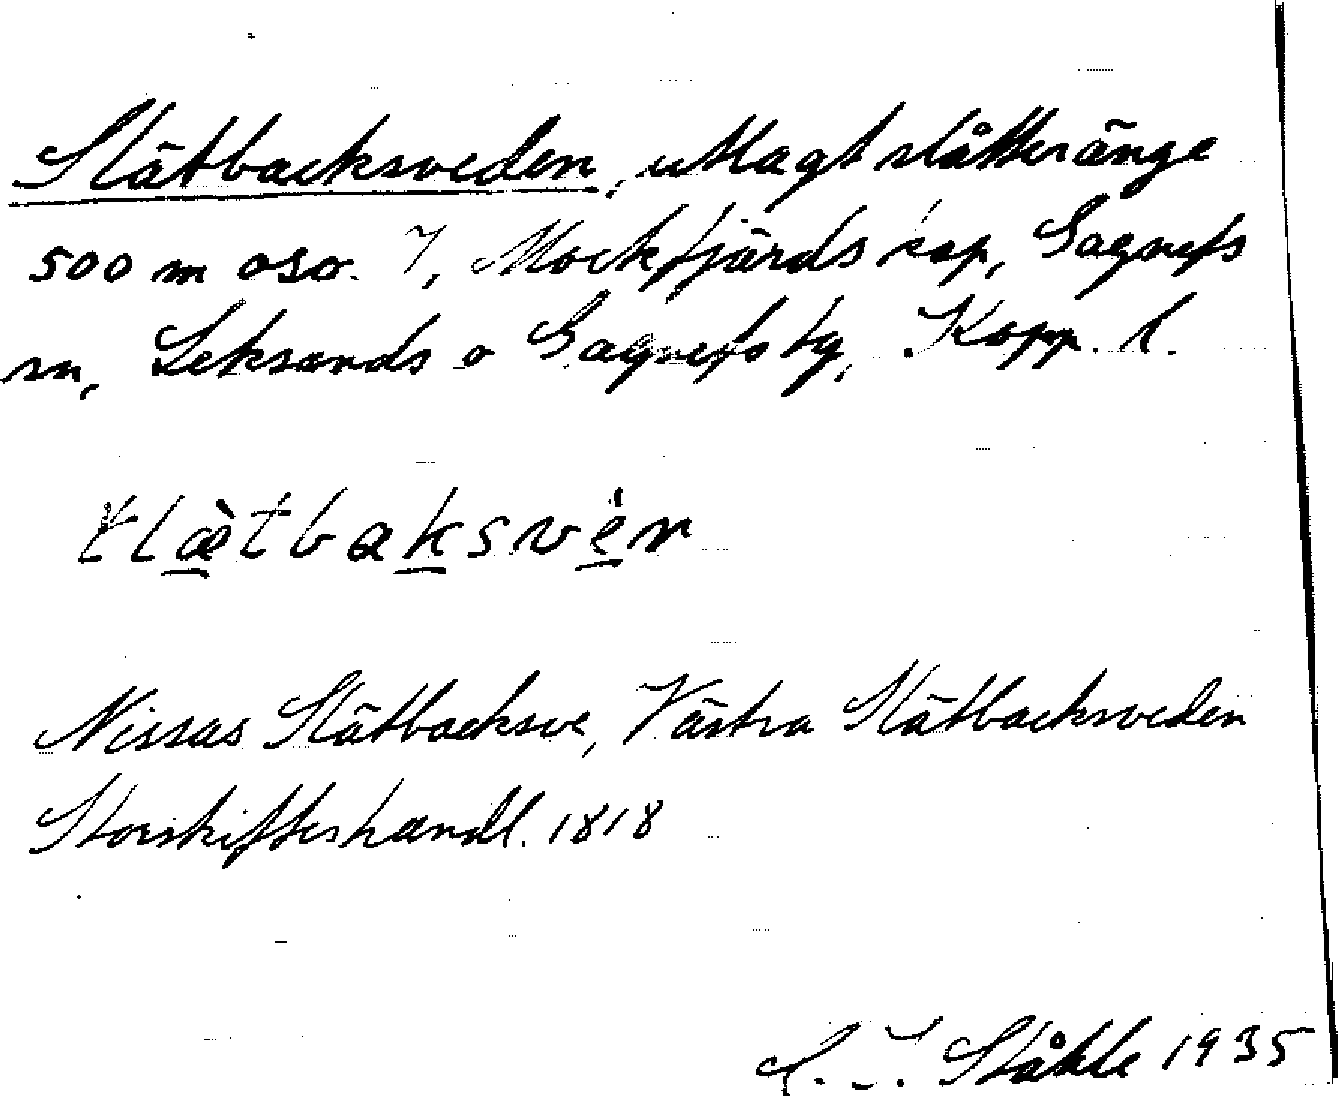 Slätbacksveden, utlagt slåtteränge
500 m oso. 7, Mockfjärds kap, Gagnefs
sn, Leksands o Gagnefs tg, Kopp. l.
tlæ̀tbaksvèn
Nissas Slätbacksve, Västra Slätbacksveden
Storskifteshandl. 1818
C. I. Ståhle 1935